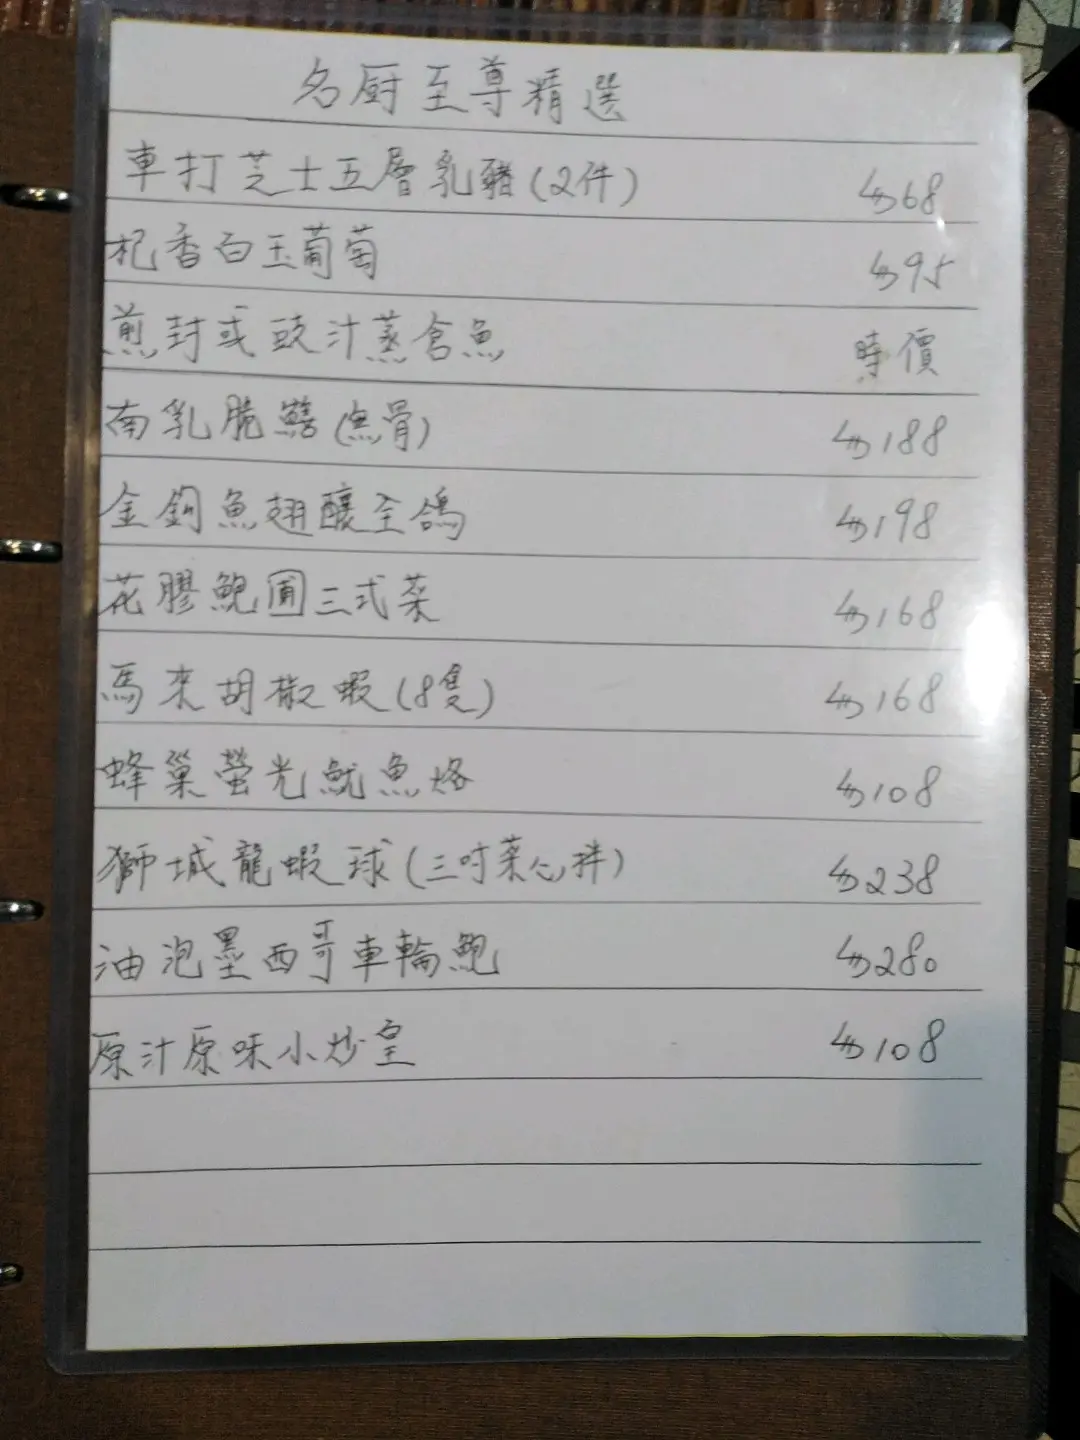 名厨至尊精選
車打芝士五層乳豬(2件) $68
杞香白玉葡萄 $95
煎封或豉汁蒸倉魚 時價
南乳脆鱔(無骨) $188
金鈎魚翅釀全鴿 $198
花膠鮑圃三式菜 $168
馬來胡椒蝦(8隻) $168
蜂巢螢光魷魚烙 $108
獅城龍蝦球(三吋菜心拌) $238
油泡墨西哥車輪鮑 $280
原汁原味小炒皇 $108